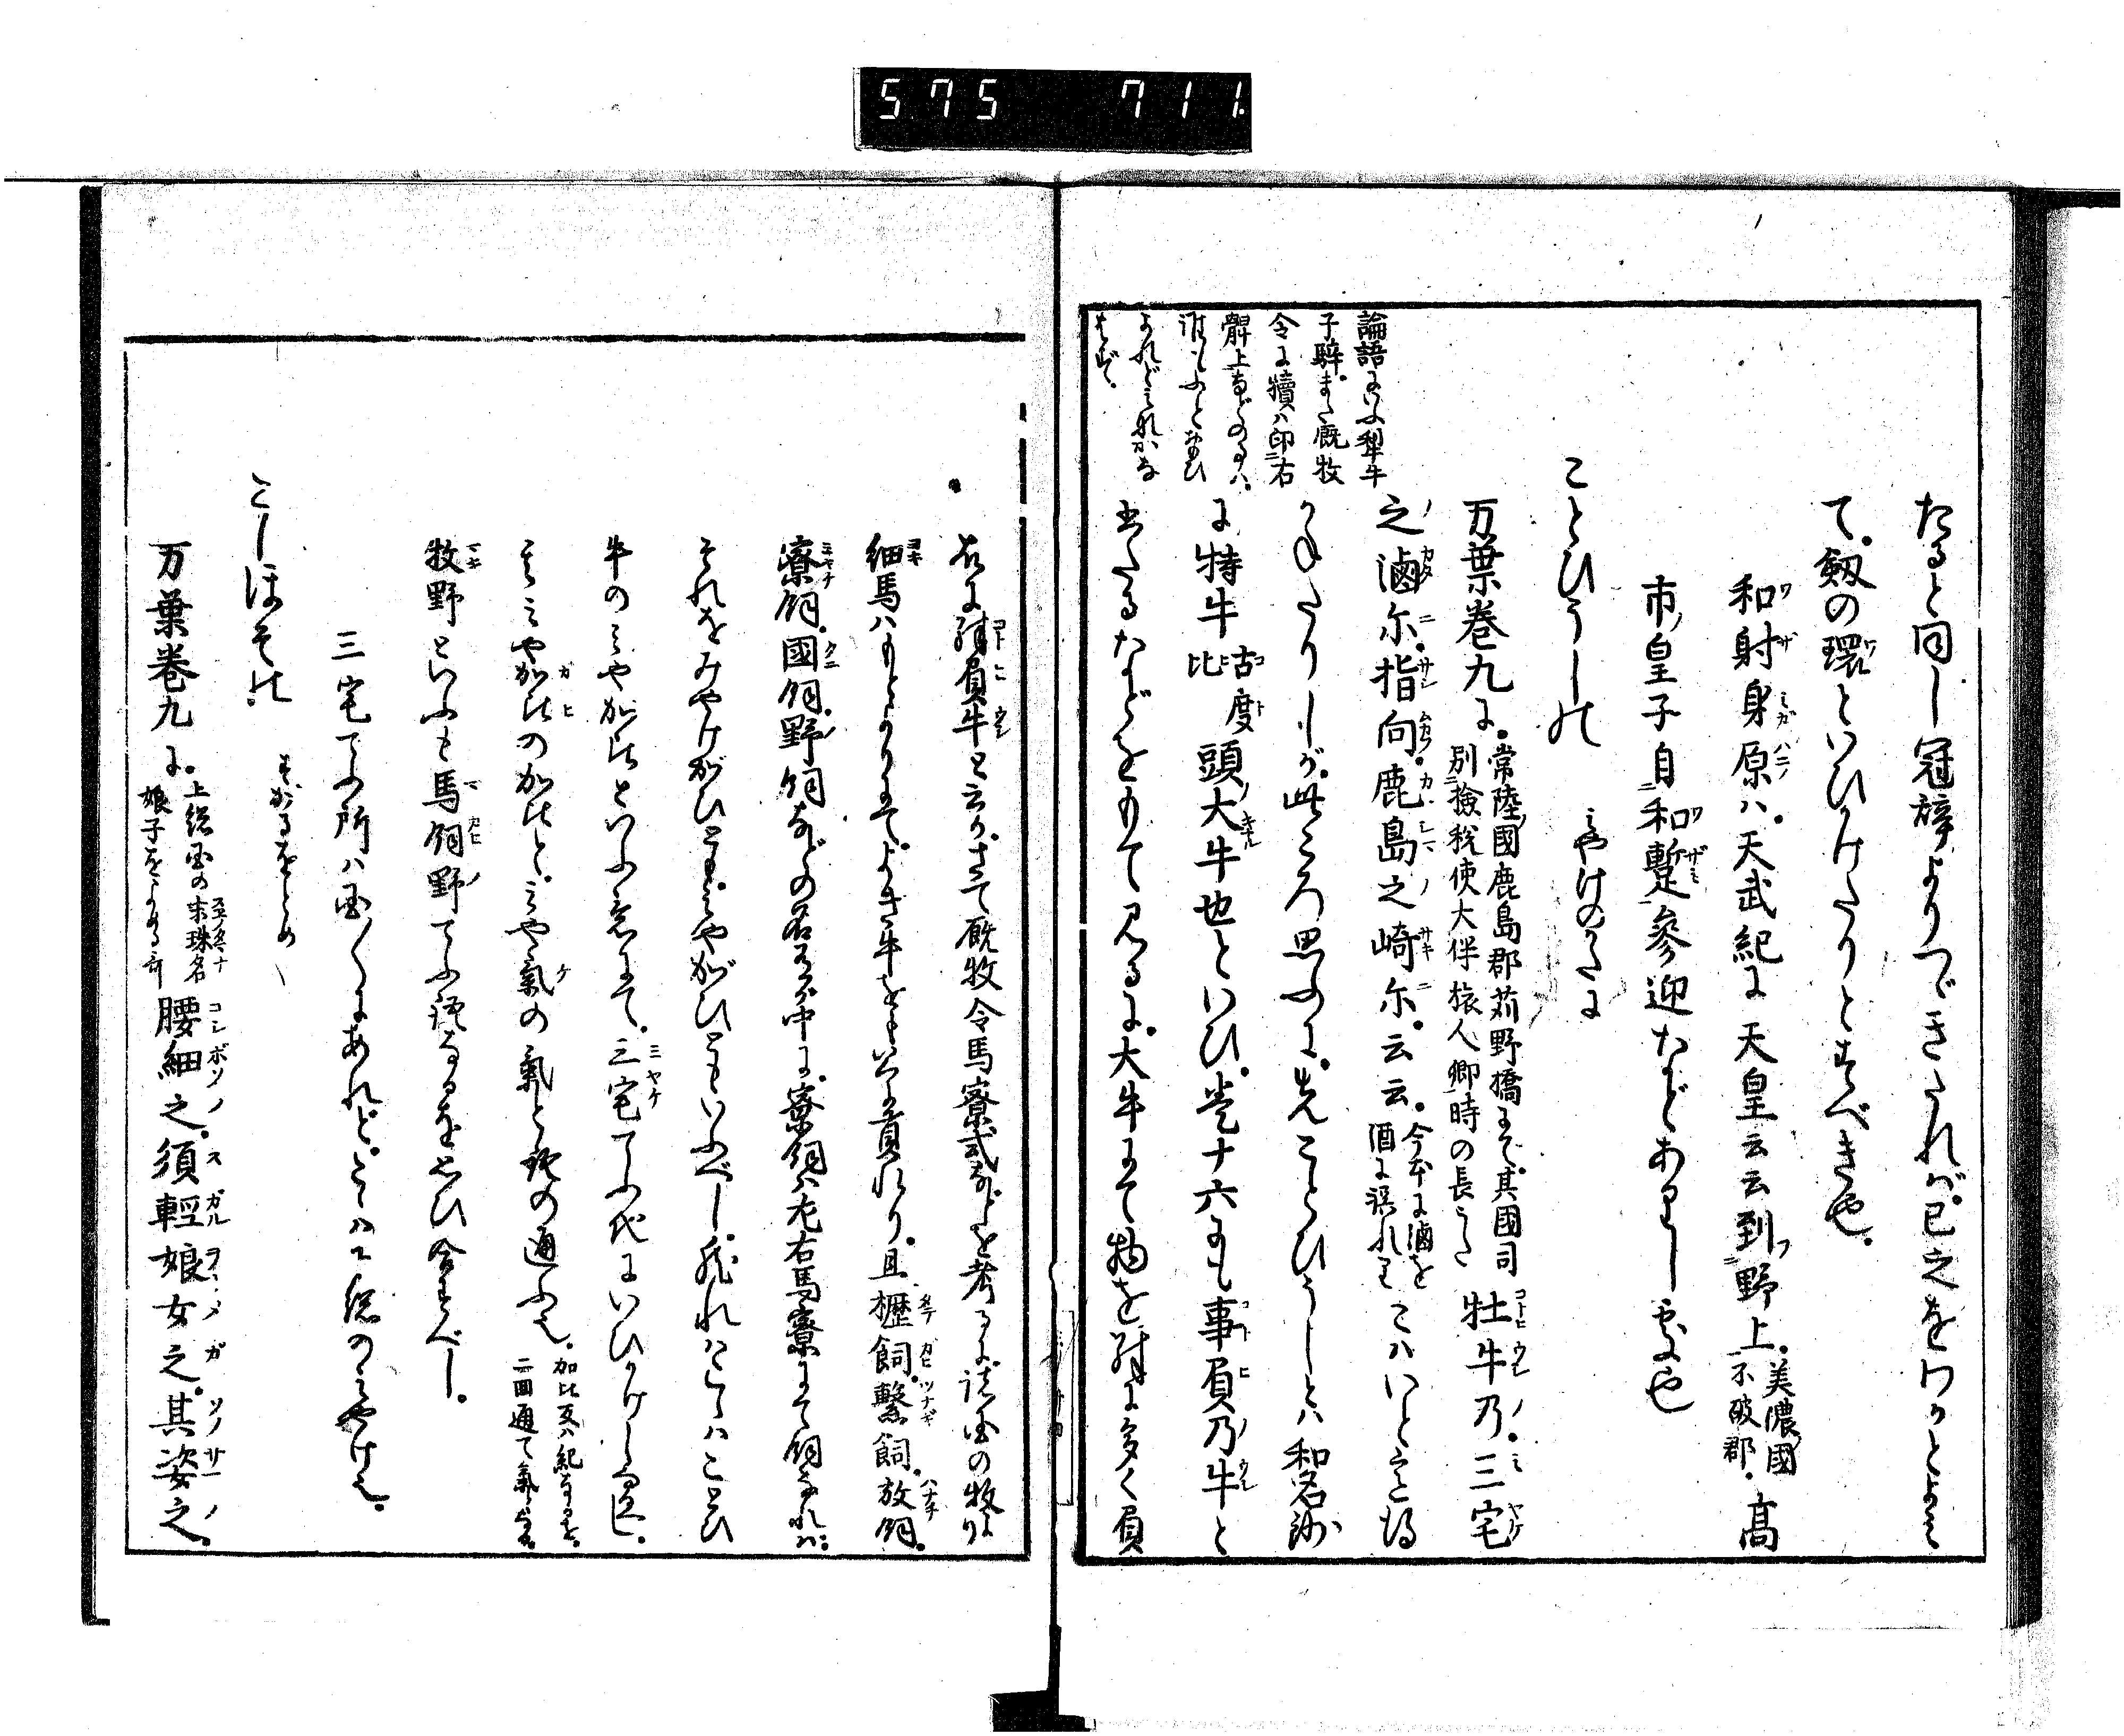 575 711
たると同し冠辞よりつゞきたれば已之をわかとよみ
て。劔の環といひかけたりとすべきや。
和射身原ハ。天武紀に天皇云云到野上。美濃國不破郡。高
市皇子自和蹔參迎などありし處や
ことひうしの みやけのかたに
万葉巻九に。常陸國鹿島郡苅野橋にて其國司別撿税使大伴旅人卿時の長うた 牡牛乃。三宅
之滷尓。指向。鹿島之崎尓。云云。今本に滷を酒に誤れり こハいと意得
かねたりしが。此ころ思ふに。先ことひうしとハ和名抄
に特牛 古度比 頭大牛也といひ。巻十六にも事負乃牛と
よみたるなどをもて見るに。大牛にて物を殊に多く負
論語にいふ犂牛
子騂。また厩牧
令に犢ハ印右
髀上などのるハ。
故に殊負牛と云か。さて厩牧令馬寮式などを考るに。諸国の牧より
細馬ハもとよりにて。よき牛をもえらみ貢れり。且櫪飼。繋飼。放飼。
寮飼。國飼。野飼などの名有が中に。寮飼ハ左右馬寮にて飼なれハ。
それをみやけがひとも。みやがひともいふべし。然れハこゝハことひ
牛のみやがひといふ意にて。三宅てふ地にいひかけしならむ。
そミやがひの加比と。みや氣の氣と魂の通ふ也。加比反ハ紀なるを。二回通て氣となる。
牧野といふも馬飼野てふ語なるを思ひ合すべし。
三宅てふ所ハ国〳〵にあれど。こゝハ下総のみやけ也。
こしほその すがるをとめ
万葉巻九に。上総国の末珠名娘子をよめる歌 腰細之。須軽娘女之。其姿之。